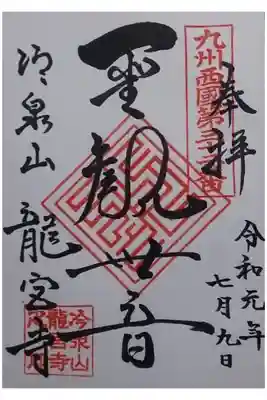 九州西國第三十二番
奉拝
令和元年
七月九日
聖観世音
冷泉山 龍宮寺
冷泉山
龍宮寺